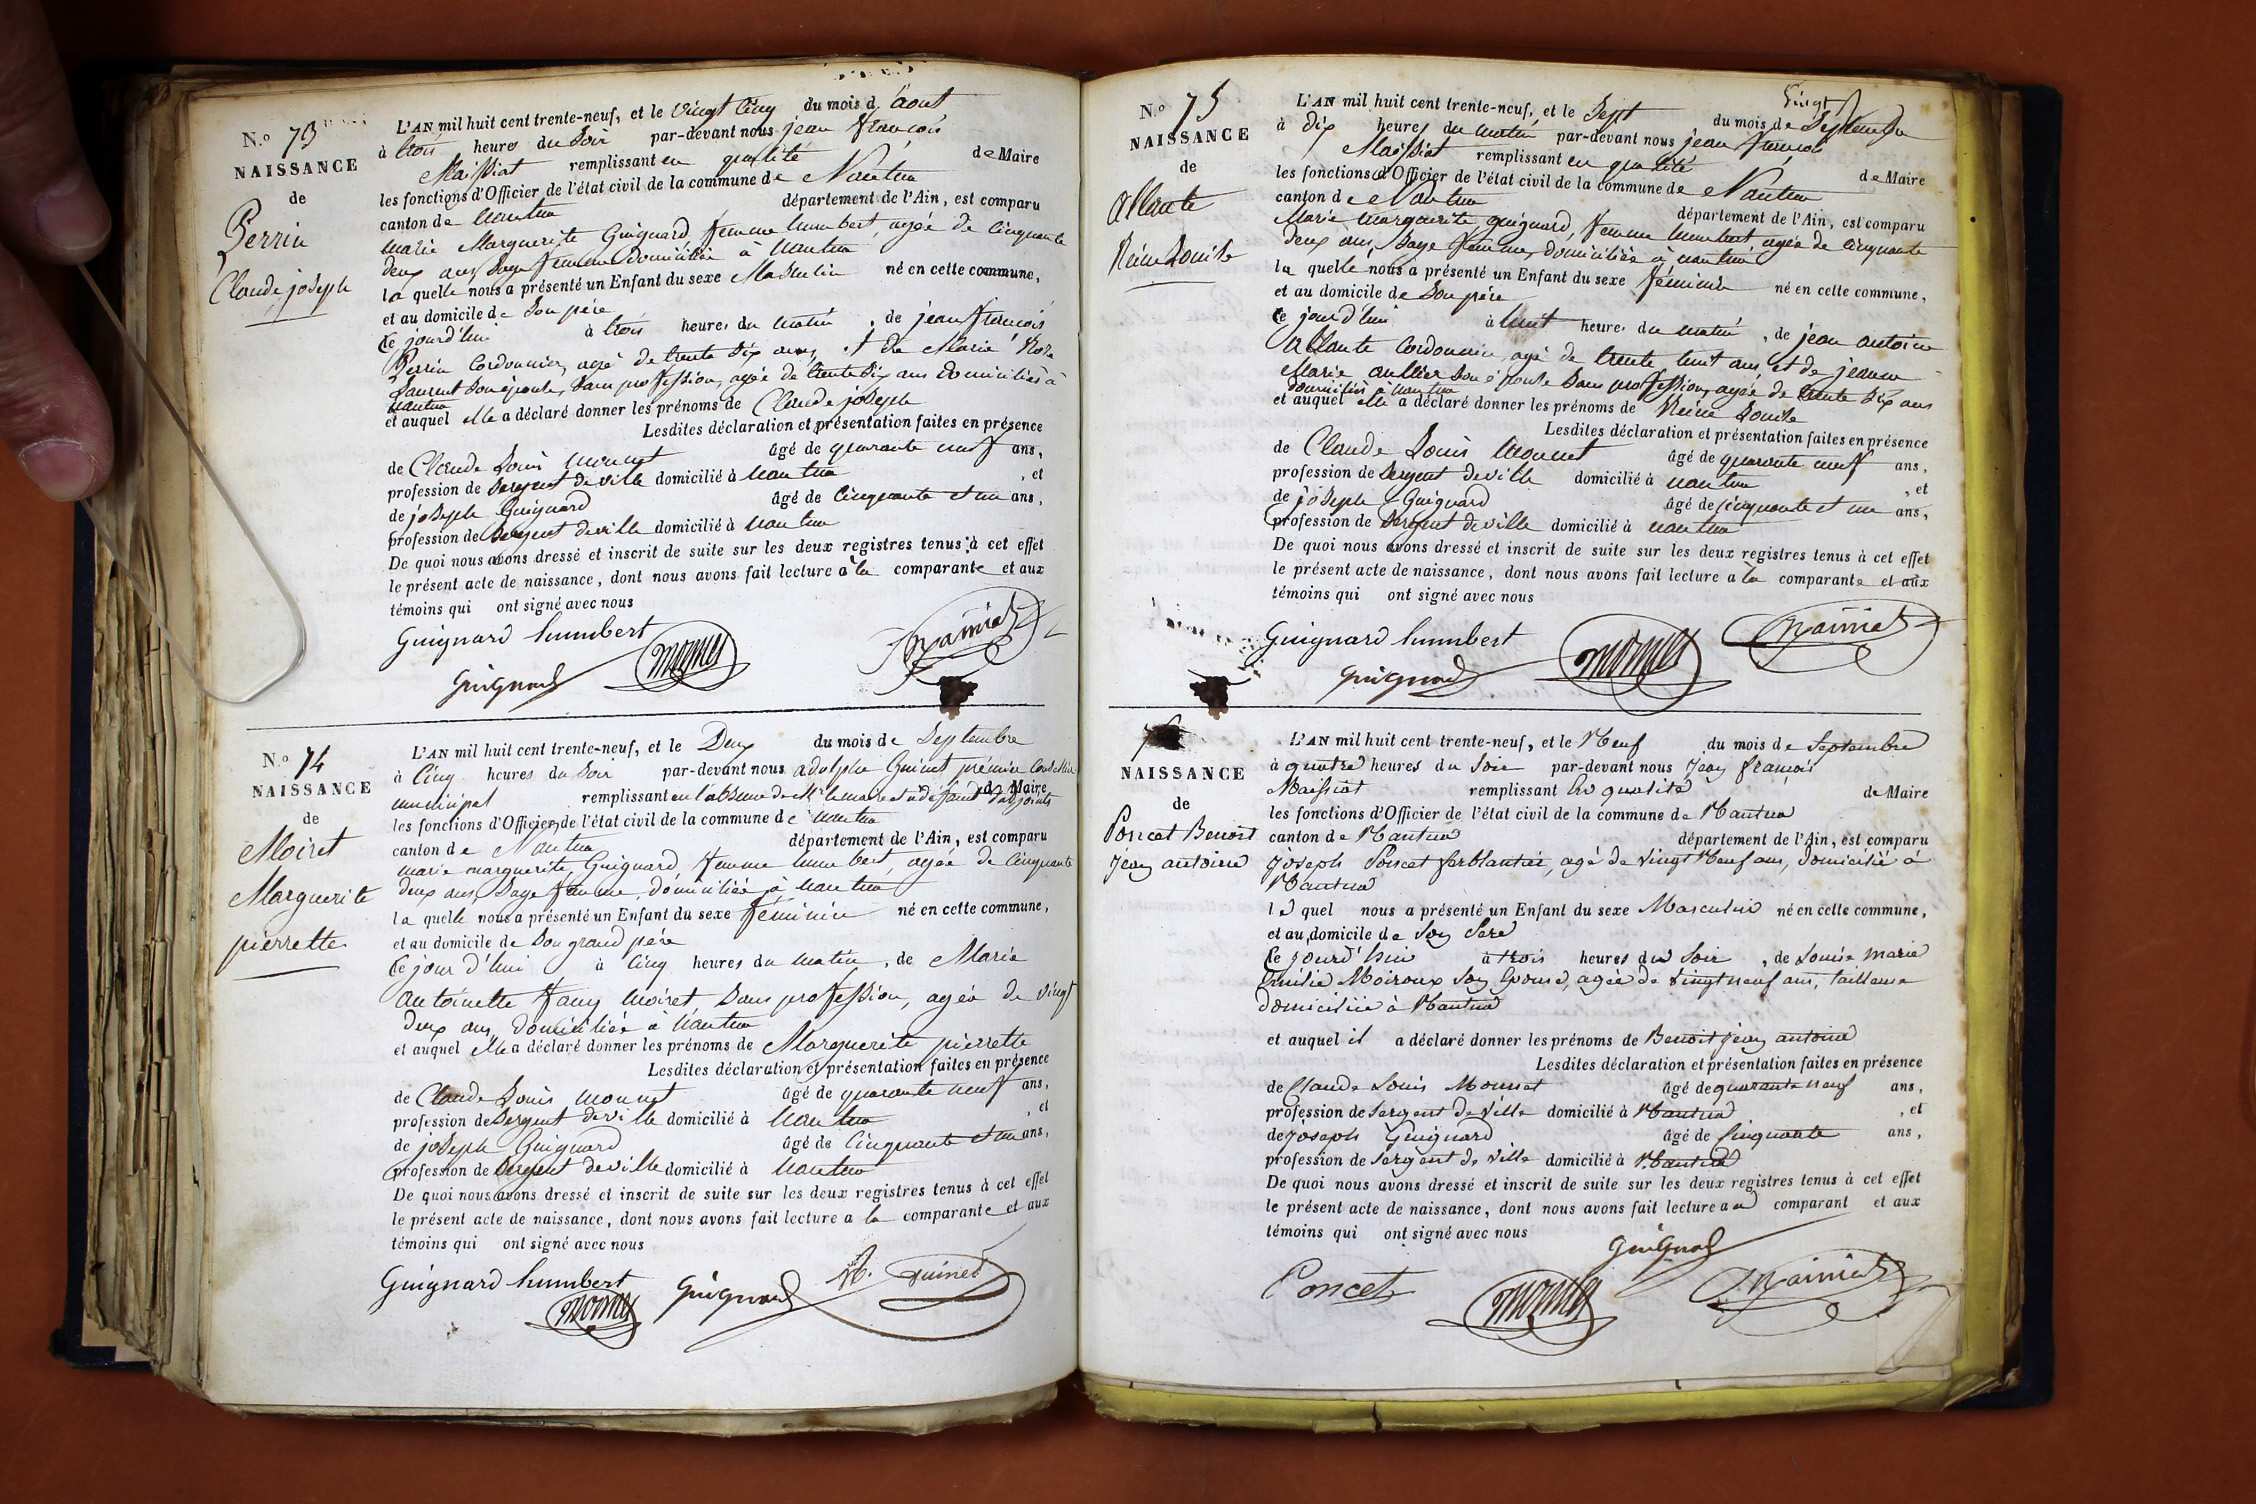 N.o 73
NAISSANCE
de
Perrin
Claude joseph
L'AN mil huit cent trente-neuf, et le vingt Cinq du mois d'août
à trois heures du Soir par-devant nous jean françois
Maissiat remplissant en qualité de Maire
les fonctions d'Officier de l'état civil de la commune de Nantua
canton de Nantua département de l'Ain, est comparu
marie Marguerite Guignard femme humbert, agée de Cinquante
deux ans Sage femme domiciliée à Nantua
la quelle nous a présenté un Enfant du sexe Masculin né en cette commune,
et au domicile de Son père
Ce jourd'hui à trois heures du matin, de jean françois
Perrin Cordonnier, agé de trente Six ans, et de Marie Rose
Laurent Son épouse, Sans profession, agée de trente Six ans domiciliés à
Nantua
et auquel elle a déclaré donner les prénoms de Claude joseph
Lesdites déclaration et présentation faites en présence
de Claude Louis Monnet âgé de quarante neuf ans,
profession de Sergent de ville domicilié à Nantua, et
de joseph Guignard âgé de Cinquante et un ans,
profession de Sergent de ville domicilié à Nantua
De quoi nous avons dressé et inscrit de suite sur les deux registres tenus à cet effet
le présent acte de naissance, dont nous avons fait lecture à la comparante et aux
témoins qui ont signé avec nous
Guignard humbert Monnet Maissiat
Guignard
N.o 74
NAISSANCE
de
Moiret
Marguerite
pierrette
L'AN mil huit cent trente-neuf, et le Deux du mois de Septembre
à Cinq heures du Soir par-devant nous adolphe Guinet premier Conseiller
municipal remplissant en l'absence de Mr le maire et à défaut d'adjoints de Maire
les fonctions d'Officier de l'état civil de la commune de Nantua
canton de Nantua département de l'Ain, est comparu
marie marguerite Guignard femme humbert, agée de Cinquante
deux ans Sage femme, domiciliée à Nantua
la quelle nous a présenté un Enfant du sexe féminin né en cette commune,
et au domicile de Son grand père
Ce jour d'hui à Cinq heures du matin, de Marie
antoinette fany Moiret Sans profession, agée de vingt
deux ans, domiciliée à Nantua
et auquel elle a déclaré donner les prénoms de Marguerite pierrette
Lesdites déclaration et présentation faites en présence
de Claude Louis Monnet âgé de quarante neuf ans,
profession de Sergent de ville domicilié à Nantua, et
de joseph Guignard âgé de Cinquante et un ans,
profession de Sergent de ville domicilié à Nantua
De quoi nous avons dressé et inscrit de suite sur les deux registres tenus à cet effet
le présent acte de naissance, dont nous avons fait lecture a la comparante et aux
témoins qui ont signé avec nous
Guignard humbert Guignard A. Guinet
Monnet
N.o 75
NAISSANCE
de
allante
Reine Louise
L'AN mil huit cent trente-neuf, et le Sept du mois de Septembre
à dix heures du matin par-devant nous jean françois
Maissiat remplissant en qualité de Maire
les fonctions d'Officier de l'état civil de la commune de Nantua
canton de Nantua département de l'Ain, est comparu
Marie marguerite guignard, femme humbert, agée de Cinquante
deux ans, Sage femme, domiciliée à nantua
la quelle nous a présenté un Enfant du sexe féminin né en cette commune,
et au domicile de Son père
Ce jourd'hui à huit heures du matin, de jean antoine
allante Cordonnier, agé de trente huit ans, et de jeanne
Marie Son épouse Sans profession, agée de trente Six ans
domiciliés à nantua
et auquel elle a déclaré donner les prénoms de Reine Louise
Lesdites déclaration et présentation faites en présence
de Claude Louis Monnet âgé de quarante neuf ans,
profession de Sergent de ville domicilié à nantua, et
de joseph Guignard âgé de Cinquante et un ans,
profession de Sergent de ville domicilié à nantua
De quoi nous avons dressé et inscrit de suite sur les deux registres tenus à cet effet
le présent acte de naissance, dont nous avons fait lecture a la comparante et aux
témoins qui ont signé avec nous
Guignard humbert Monnet Maissiat
Guignard
NAISSANCE
de
Poncet Benoit
Jean antoine
L'AN mil huit cent trente-neuf, et le Neuf du mois de Septembre
à quatre heures du Soir par-devant nous Jean françois
Maissiat remplissant En qualité de Maire
les fonctions d'Officier de l'état civil de la commune de Nantua
canton de Nantua département de l'Ain, est comparu
Joseph Poncet ferblantier, agé de vingt Neuf ans, domicilié à
Nantua
le quel nous a présenté un Enfant du sexe Masculin né en cette commune,
et au domicile de Son Père
Ce jourd'hui à trois heures du Soir, de Louise Marie
Emilie Moiroux Son Epouse, agée de vingt neuf ans, tailleuse
domiciliée à Nantua
et auquel il a déclaré donner les prénoms de Benoit Jean antoine
Lesdites déclaration et présentation faites en présence
de Claude Louis Monnet âgé de quarante neuf ans,
profession de Sergent de Ville domicilié à Nantua, et
de Joseph Guignard âgé de Cinquante ans,
profession de Sergent de Ville domicilié à Nantua
De quoi nous avons dressé et inscrit de suite sur les deux registres tenus à cet effet
le présent acte de naissance, dont nous avons fait lecture au comparant et aux
témoins qui ont signé avec nous
Guignard
Poncet Monnet Maissiat